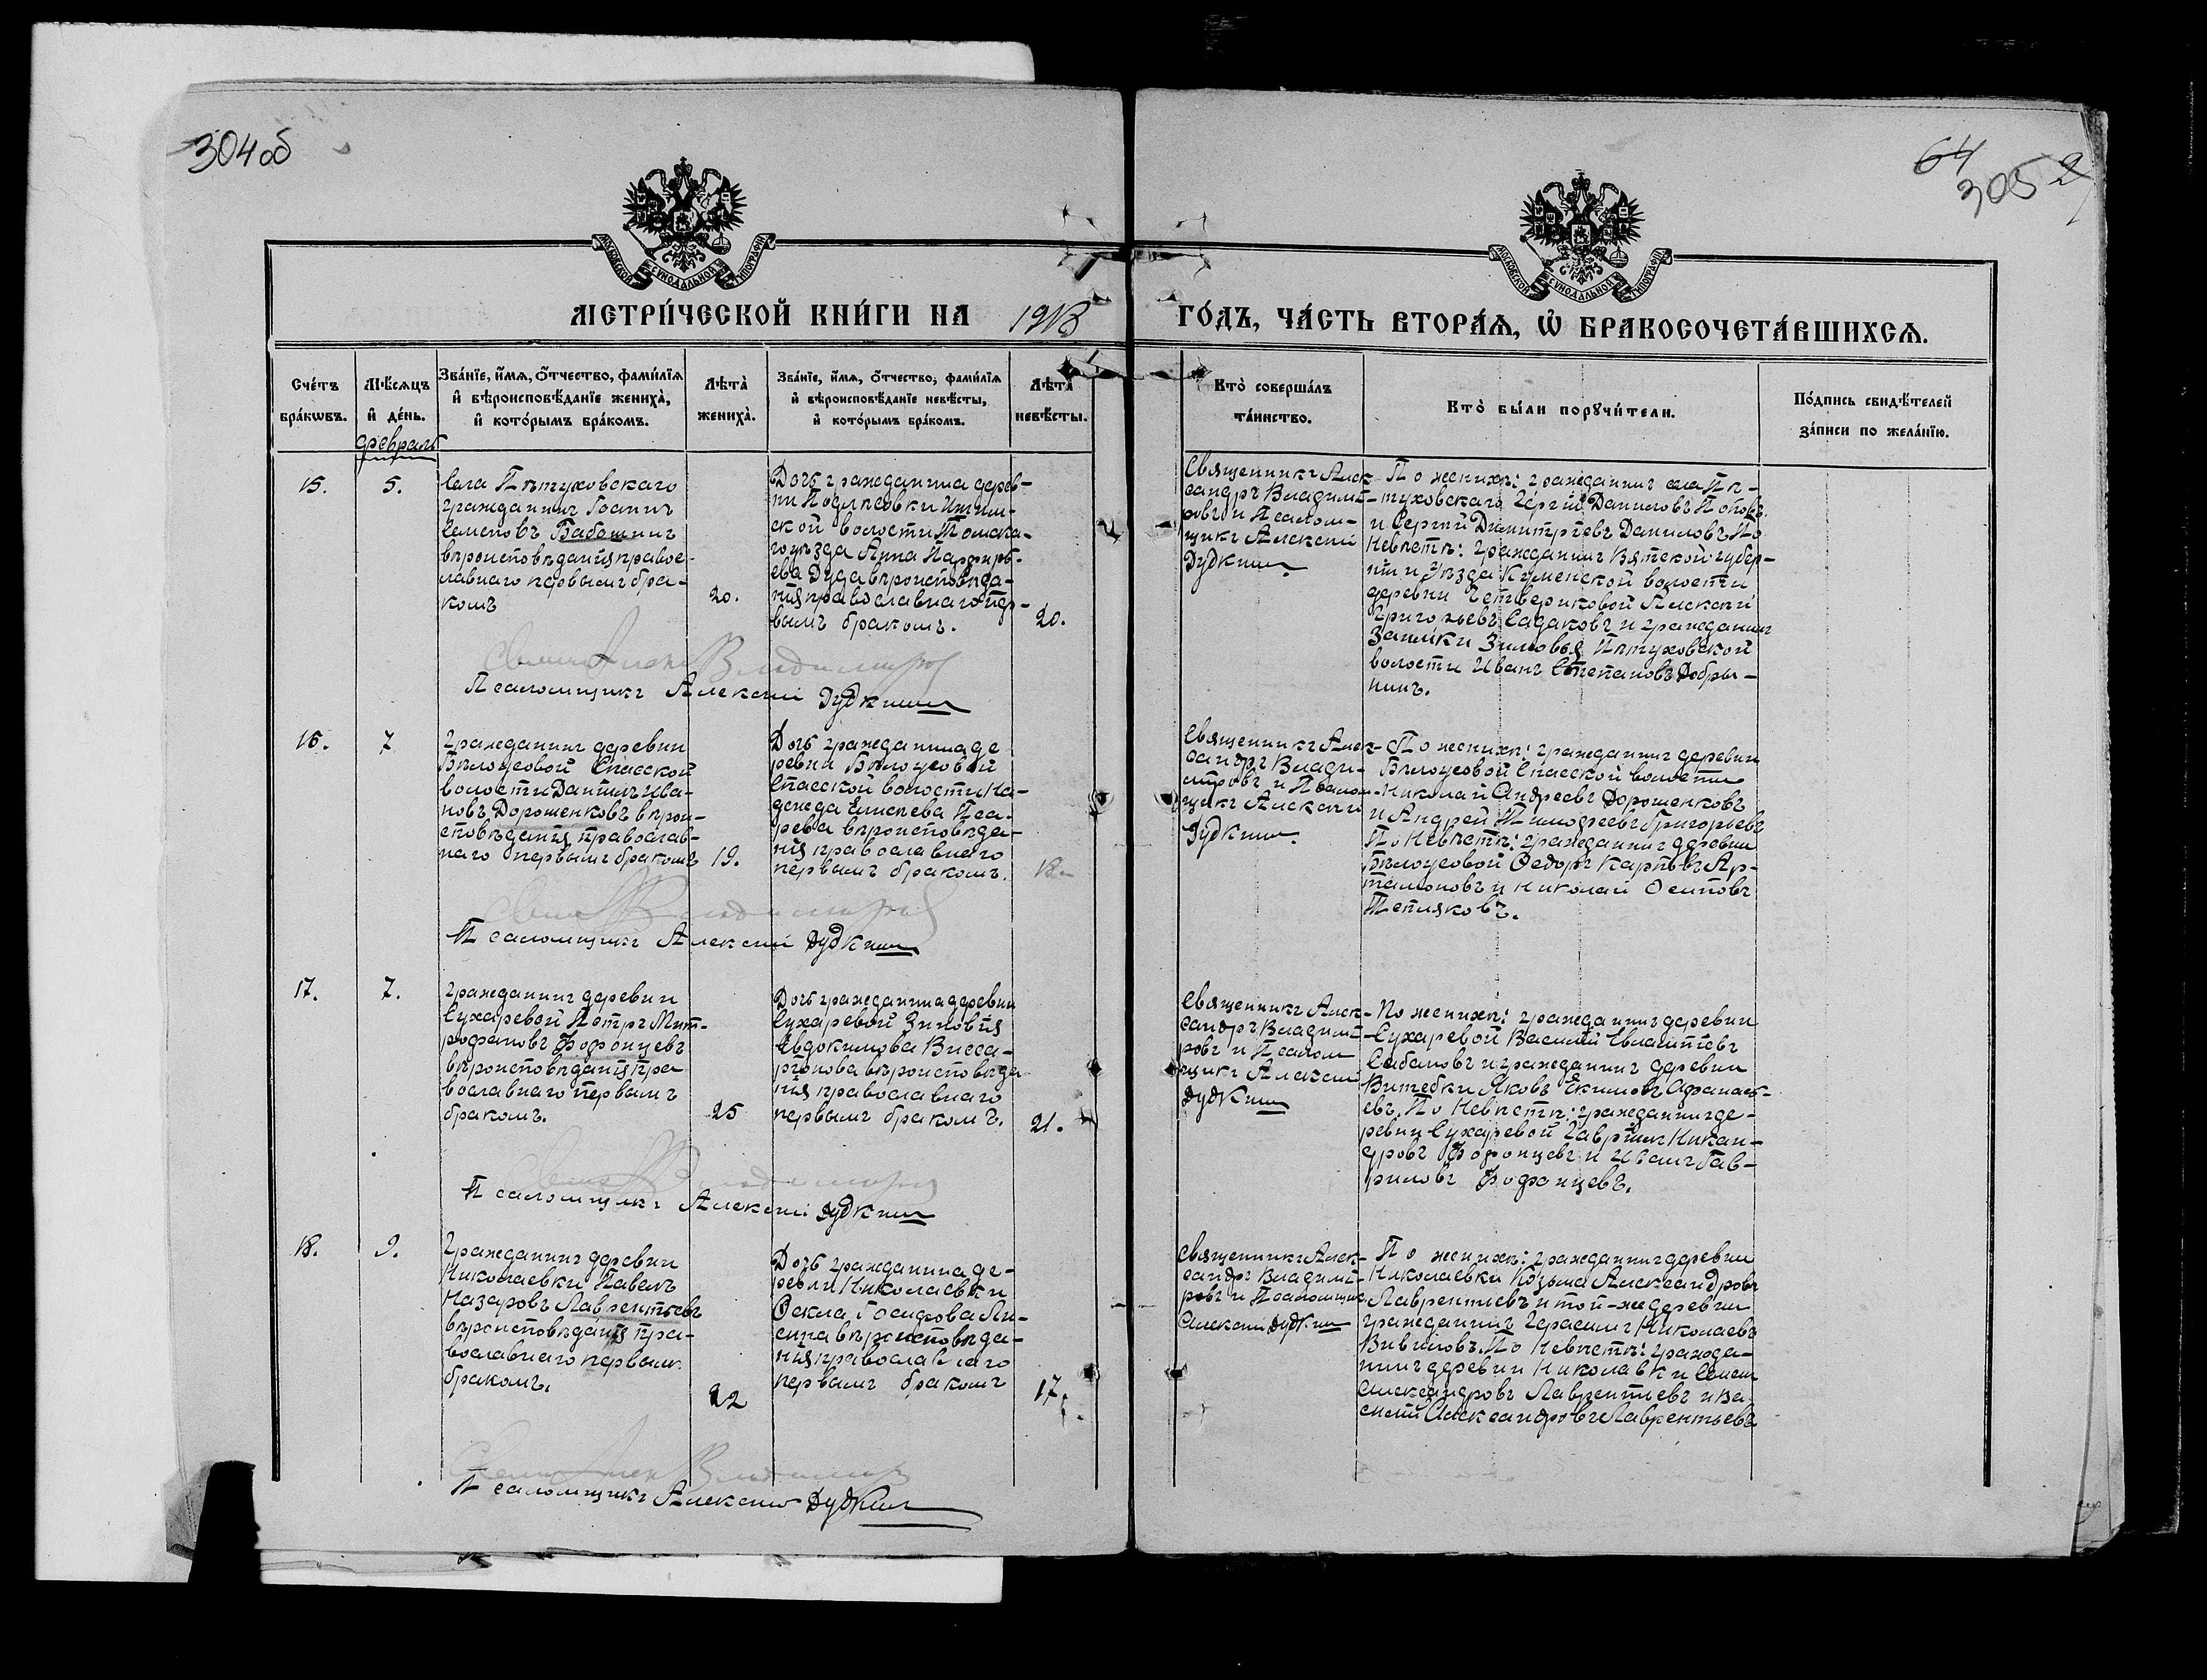 304 об
64
305
МОСКОВСКОЙ СѴНОДАЛЬНОЙ ТИПОГРАФІИ
МОСКОВСКОЙ СѴНОДАЛЬНОЙ ТИПОГРАФІИ
МЕТРИ́ЧЕСКОЙ КНИ́ГИ НА 1918
ГО́ДЪ, ЧА́СТЬ ВТОРА́Ѧ, Ѡ҆ БРАКОСОЧЕТА́ВШИХСѦ.
Сче́тъ бра́кѡвъ.
Мѣ́сѧцъ и҆ де́нь.
Зва́нїе, и҆́мѧ, ѻ҆́тчество, фами́лїѧ и҆ вѣроисповѣ́данїе жениха̀, и҆ кото́рымъ бра́комъ.
Лѣ́та̀ жениха̀.
Зва́нїе, и҆́мѧ, ѻ҆́тчество, фами́лїѧ и҆ вѣроисповѣ́данїе невѣ́сты, и҆ кото́рымъ бра́комъ.
Лѣ́та̀ невѣ́сты.
Кто̀ соверша́лъ та́инство.
Кто̀ бы́ли порꙋчи́тели.
По́дпись свидѣ́телей за́писи по жела́нїю.
февраль
15.
5.
Села Пѣтуховскаго
гражданинъ Іоаннъ
Семеновъ Бабошинъ
вѣроисповѣданія правос-
лавнаго первымъ бра-
комъ
20.
Дочь гражданина дерев-
ни Подлѣсовки Ишим-
ской волости Томска-
го уѣзда Анна Парфирь-
ева Дуда вѣроисповѣда-
нія православнаго пер-
вымъ бракомъ.
20.
Священникъ Алек-
сандръ Владимі-
ровъ и Псалом-
щикъ Алексѣй
Дудкинъ
По женихѣ: гражданинъ села Пѣ-
туховскаго Сергій Даниловъ Поповъ
и Сергѣй Димитріевъ Даниловъ По
Невѣстѣ: гражданинъ Вятской губер-
ніи и Уѣзда Куменской волости
деревни Четвериковой Алексѣй
Григорьевъ Садаковъ и гражданинъ
Заимки Зимовья Пѣтуховской
волости Иванъ Степановъ Добры-
нинъ.
Псаломщикъ Алексѣй Дудкинъ
16.
7
Гражданинъ деревни
Бѣлоусовой Спасской
волости Даніилъ Ива-
новъ Дорошенковъ вѣрои-
сповѣданія православ-
наго первымъ бракомъ
19.
Дочь гражданина де
ревни Бѣлоусовой
Спасской волости На-
дежда Елисѣева Пса-
рева вѣроисповѣда-
нія православнаго
первымъ бракомъ.
18.
Священникъ Алек-
сандръ Влади-
міровъ и Псалом-
щикъ Алексѣй
Дудкинъ.
По женихѣ: гражданинъ деревни
Бѣлоусовой Спасской волости
Николай Андреевъ Дорошенковъ
и Андрей Тимофеевъ Григорьевъ
По Невѣстѣ: гражданинъ деревни
Бѣлоусовой Ѳедоръ Карповъ Ар-
тамоновъ и Николай Осиповъ
Тепляковъ.
Псаломщикъ Алексѣй Дудкинъ
17.
7.
Гражданинъ деревни
Сухаревой Петръ Мит-
рофановъ Фофонцевъ
вѣроисповѣданія пра
вославнаго первымъ
бракомъ.
25
Дочь гражданина деревни
Сухаревой Зиновія
Евдокимова Висса-
ріонова вѣроисповѣда
нія православнаго
первымъ бракомъ.
21.
Священникъ Алек-
сандръ Владимі-
ровъ и Псалом
щикъ Алексѣй
Дудкинъ
По женихѣ: гражданинъ деревни
Сухаревой Василій Евлампіевъ
Сабановъ и гражданинъ деревни
Витебки Яковъ Екимовъ Афанась-
евъ. По Невѣстѣ: гражданинъ де-
ревни Сухаревой Гавріилъ Никан-
дровъ Фофонцевъ и Иванъ Гав-
риловъ Фофонцевъ.
Псаломщикъ Алексѣй Дудкинъ
18.
9.
Гражданинъ деревни
Николаевки Павелъ
Назаровъ Лаврентьевъ
вѣроисповѣданія пра-
вославнаго первымъ
бракомъ.
22
Дочь гражданина де-
ревни Николаевки
Ѳекла Іосифова Ли-
сина вѣроисповѣда-
нія православнаго
первымъ бракомъ
17.
Священникъ Алек-
сандръ Владимі-
ровъ и Псаломщикъ
Алексѣй Дудкинъ
По женихѣ: гражданинъ деревни
Николаевки Козьма Александровъ
Лаврентіевъ и той-же деревни
гражданинъ Герасимъ Николаевъ
Вивиловъ. По Невѣстѣ: гражда-
нинъ деревни Николавки Семенъ
Александровъ Лаврентіевъ и Ва-
силій Александровъ Лаврентьевъ
Псаломщикъ Алексѣй Дудкинъ